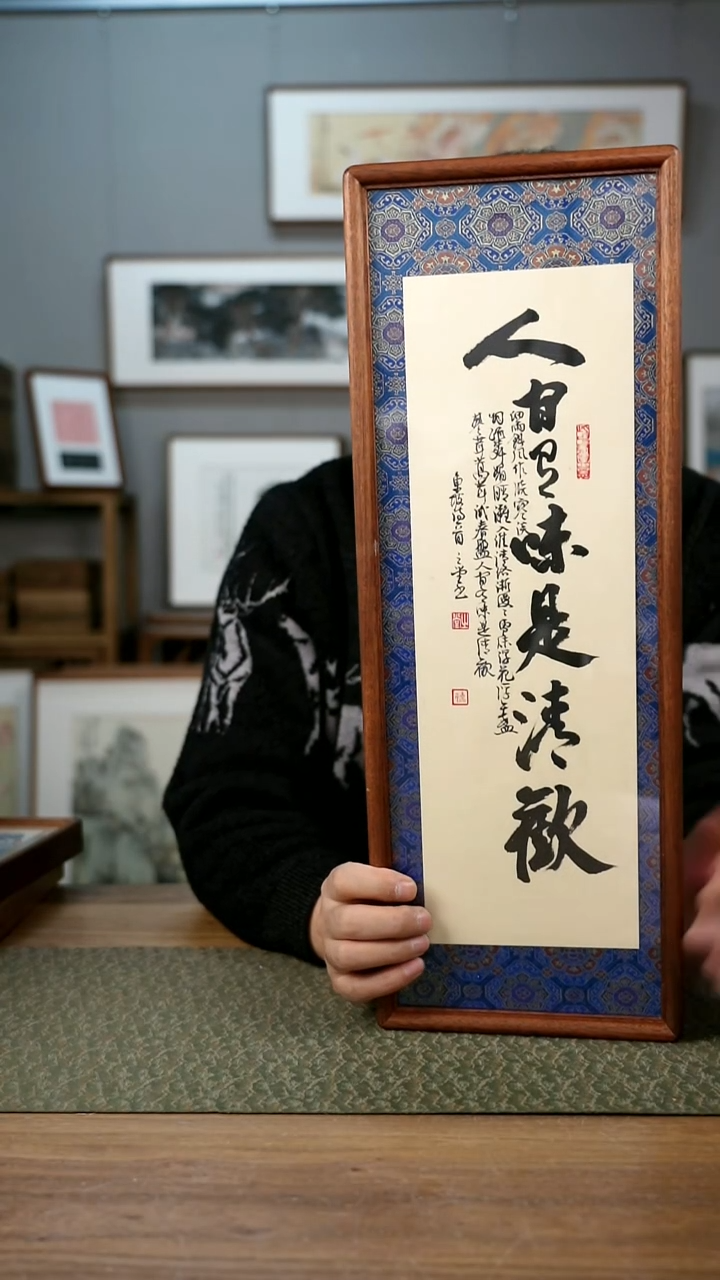 人間有味是清歡
細雨斜風作曉寒淡
烟疏柳媚晴灘入淮清洛漸漫漫雪沫乳花浮午盞
蓼茸蒿筍試春盤人間有味是清歡
東坡詞一首